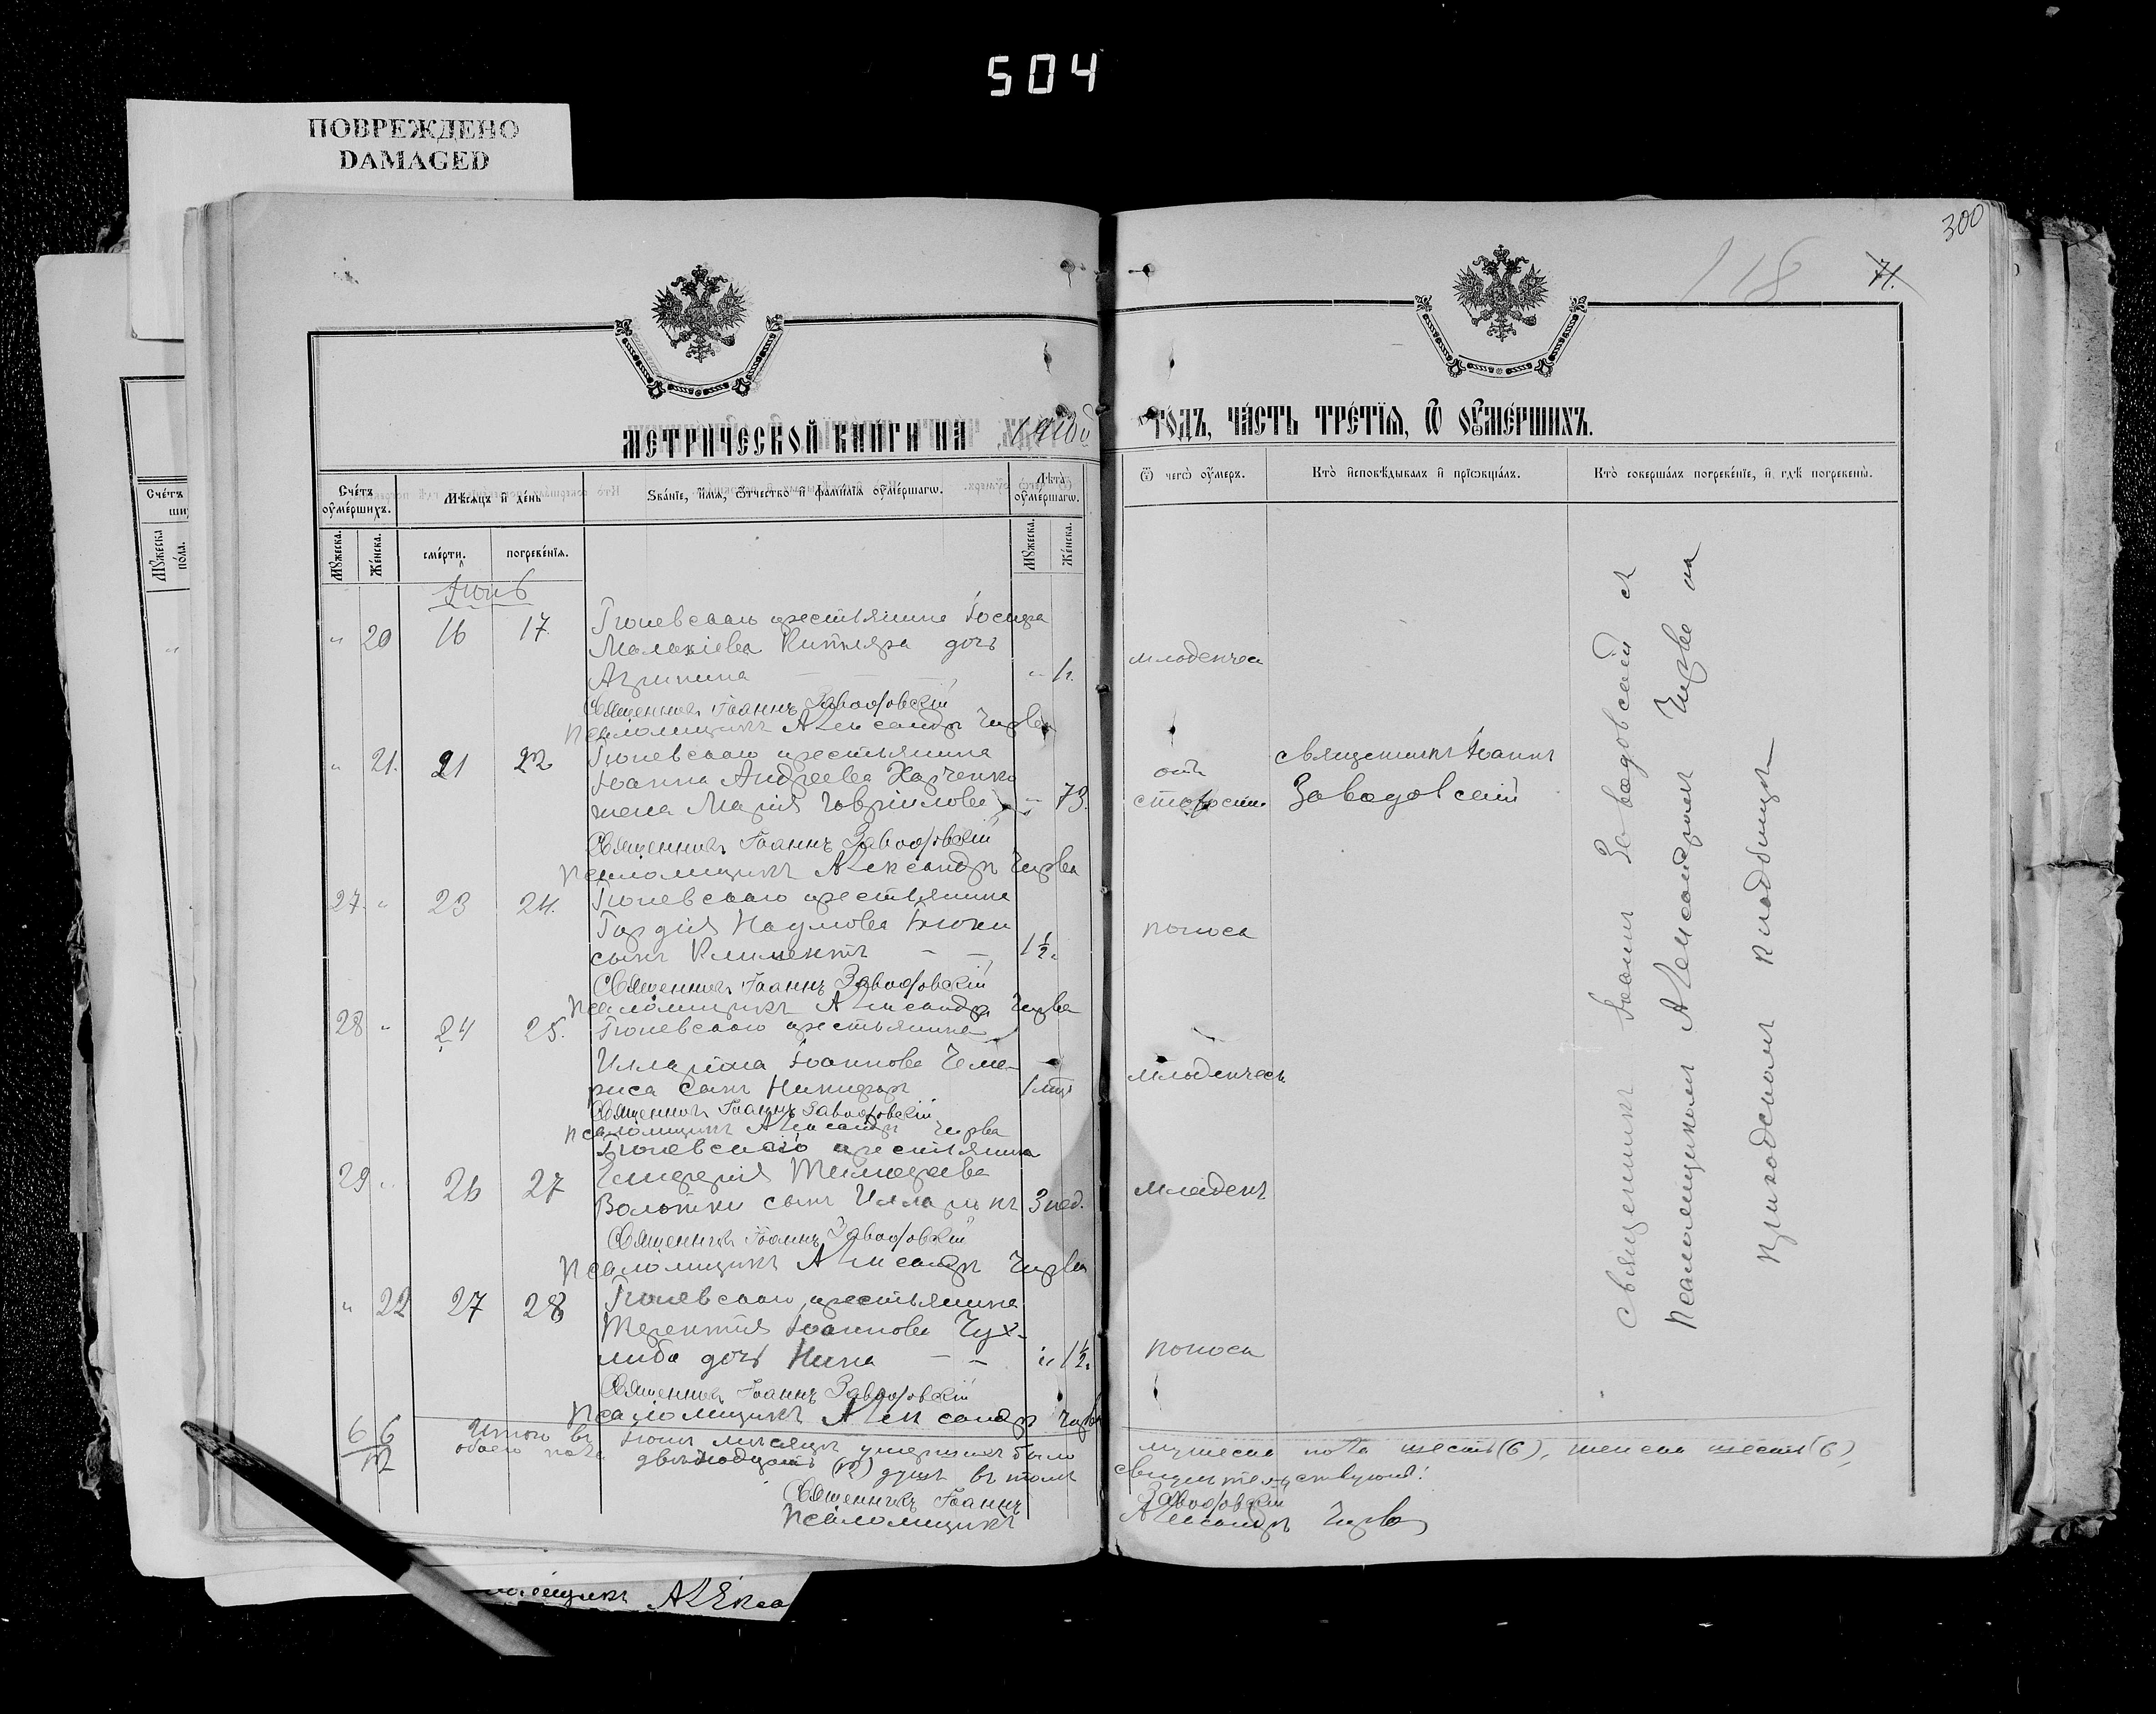 504
ПОВРЕЖДЕНО
DAMAGED
300
118
71.
МЕТРИЧЕСКОЙ КНИГИ НА 1910й
ГОДЪ, ЧАСТЬ ТРЕТІЯ, Ѿ ОУМЕРШИХЪ.
Счетъ оумершихъ.
Мѣсяцъ и день
Званіе, имя, отчество и фамилія оумершагѡ.
Лѣта оумершагѡ.
Ѿ чегѡ оумеръ.
Кто исповѣдывалъ и пріѡбщалъ.
Кто совершалъ погребеніе, и гдѣ погребены.
Мужеска.
Женска.
смерти.
погребенія.
Мужеска.
Женска.
Іюнь
" 20 16 17. крестьянина Іосифа
Малахіева дочь
Агрипина — — " 1.
младенчес
Священникъ Іоаннъ Заводовскій
Псаломщикъ Александръ Чирва
" 21. 21 22 крестьянина
Іоанна Андреева Харченко
жена Марія Гавріилова " 73.
отъ
старости
священникъ Іоаннъ
Заводовскій
Священникъ Іоаннъ Заводовскій
Псаломщикъ Александръ Чирва
27. " 23 24. крестьянина
Гордія Наумова
сынъ Климентъ — — 1½.
поноса
Священникъ Іоаннъ Заводовскій
Псаломщикъ Александръ Чирва
28 " 24 25. крестьянина
Илларіона Іоаннова Чеме-
риса сынъ Никифоръ 1 мця
младенческ
Священникъ Іоаннъ Заводовскій
Псаломщикъ Александръ Чирва
крестьянина
29 " 26 27 Тимофеева
Волошки сынъ Илларіонъ 3 нед.
младенч
Священникъ Іоаннъ Заводовскій
Псаломщикъ Александръ Чирва
" 22 27 28 крестьянина
Терентія Іоаннова Чух-
либа дочь Нина — — " 1½.
поноса
Священникъ Іоаннъ Заводовскій
Псаломщикъ Александръ Чирва
Священникъ Іоаннъ Заводовскій съ
Псаломщикомъ Александромъ Чирва на
приходскомъ кладбищѣ
6 6
12
Итого въ Іюнѣ мѣсяцѣ умершихъ было
обоего пола двѣнадцать (12) душъ въ томъ
мужеска пола шесть (6), женска шесть (6),
свидетельствуютъ:
Священникъ Іоаннъ Заводовскій
Псаломщикъ Александръ Чирва
Счетъ
Мужеска
пола.
Алекса